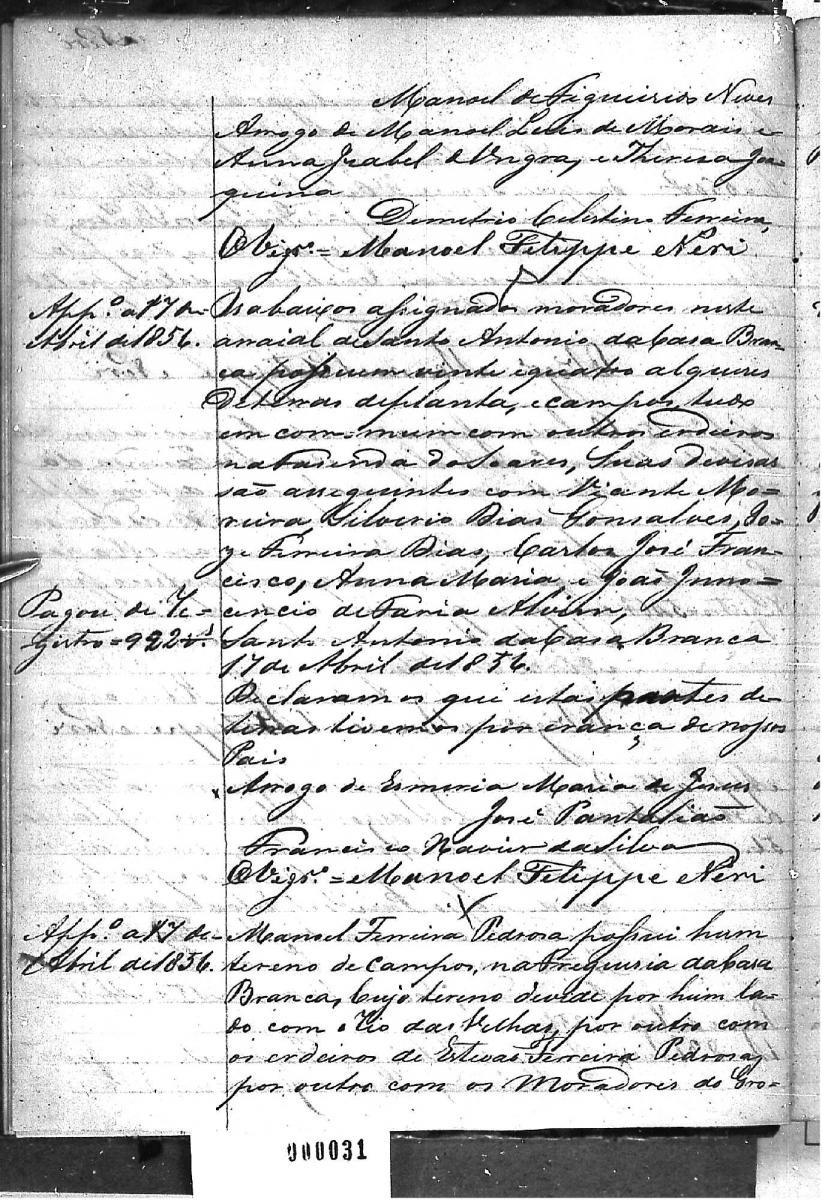 Manoel de Figueirios Neves
Arrogo de Manoel Luis de Morais e
Anna Izabel d Ungra, e Thereza Joa-
quina
Demetrio Celestino Ferreira,
O Vigr.º = Manoel Felippe Neri
App.º a 17 de
Abril de 1856.
Os abaixos assignados moradores neste
arraial de Santo Antonio da Casa Bran-
ca possuem vinte e quatro alqueres
de terras de planta, e campos, tudo
em com-mum com outros erdieros
na Fasenda do Soares, Suas devisas
são asseguintes com Vicente Mo-
reira, Silverio Dias Gonsalves, Jo-
ze Ferreira Dias, Carlos José Fran-
cisco, Anna Maria e João Inno-
Pagou de Re-
gistro = 922 r.s
cencio de Faria Alvim,
Santo Antonio da Casa Branca
17 de Abril de 1856.
Declaramos que estas partes de
terras tivemos por erança de nossos
Pais
Arrogo de Esmeria Maria de Jesus
José Pantalião
Francisco Xavier da Silva
O Vigr.º = Manoel Felippe Neri
App.º a 17 de
Abril de 1856.
Manoel Ferreira Pedrosa possui hum
tereno de campos, na Freguesia da Casa
Branca, Cujo tereno devide por hum la-
do com o Rio das Velhas, por outro com
os erdeiros de Estevão Ferreira Pedrosa,
por outro com os Moradores do Cro-
000031